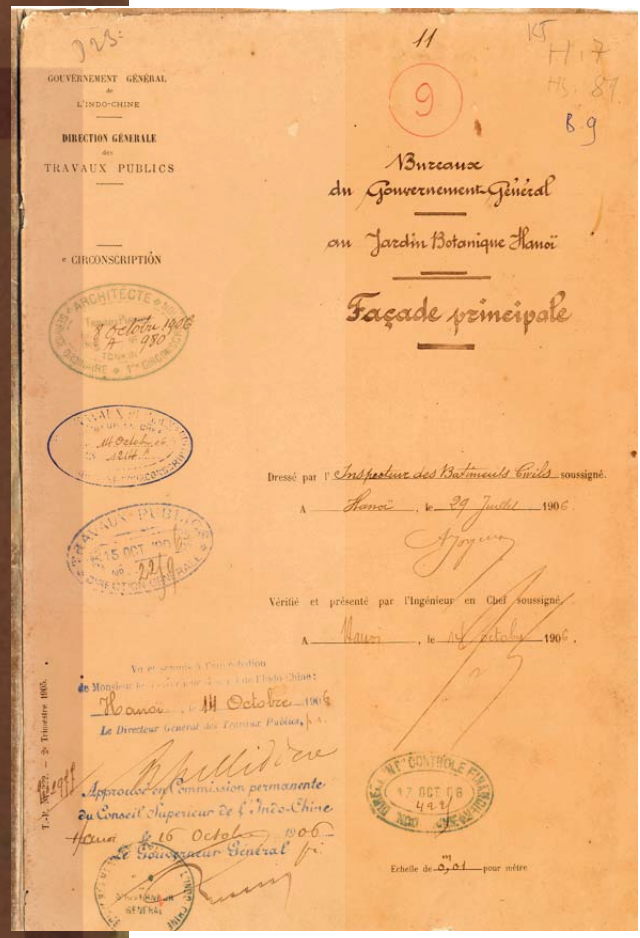 11
9
B. 9
GOUVERNEMENT GÉNÉRAL
de
L'INDO-CHINE
DIRECTION GÉNÉRALE
des
TRAVAUX PUBLICS
CIRCONSCRIPTION
Bureaux
du Gouvernement-Général
au Jardin Botanique Hanoï
Façade principale
ARCHITECTE
8 octobre 1906
980
TONKIN
14 Octobre 06
TRAVAUX PUBLICS
15 OCT 1906
No 2259
DIRECTION GÉNÉRALE
Dressé par l'Inspecteur des Batiments Civils soussigné.
A Hanoï, le 29 Juillet 1906.
Vérifié et présenté par l'Ingénieur en Chef soussigné,
A Hanoi, le 14 octobre 1906.
de Monsieur le
Hanoï, 14 Octobre 1906
Le Directeur Général des Travaux Publics, p.i.
Approuvé en Commission permanente
du Conseil Supérieur de l'Indo-Chine
Hanoi le 16 Octobre 1906
Le Gouverneur Général
GÉNÉRAL
CONTROLE FINANCIER
17 OCT 06
Echelle de 0,01 pour mètre
m
2e Trimestre 1905.